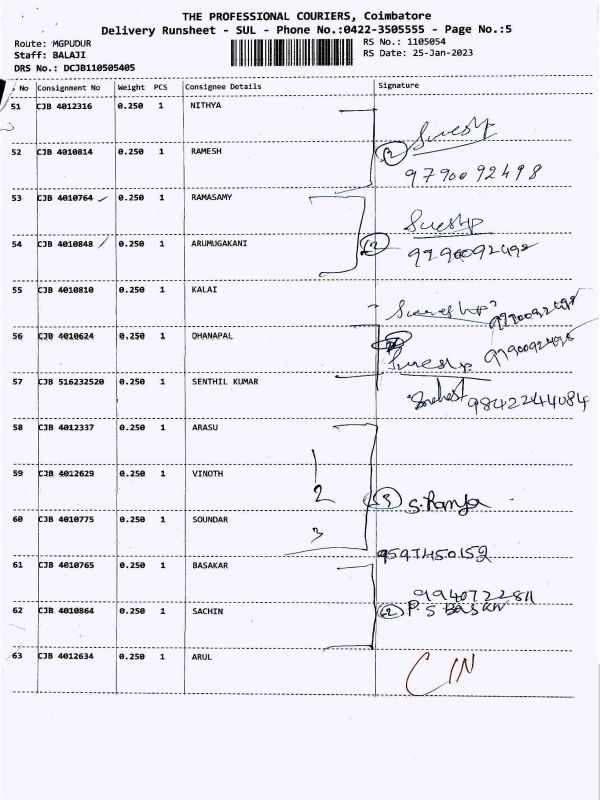 THE PROFESSIONAL COURIERS, Coimbatore
Delivery Runsheet - SUL - Phone No.:0422-3505555 - Page No.:5
Route: MGPUDUR
Staff: BALAJI
DRS No.: DCJB110505405
RS No.: 1105054
RS Date: 25-Jan-2023
No Consignment No Weight PCS Consignee Details Signature
51 CJB 4012316 0.250 1 NITHYA
Suresh
52 CJB 4010814 0.250 1 RAMESH 2
9790092498
53 CJB 4010764 0.250 1 RAMASAMY
Suresh
54 CJB 4010848 0.250 1 ARUMUGAKANI 2
9790092498
55 CJB 4010810 0.250 1 KALAI
9790092498
56 CJB 4010624 0.250 1 DHANAPAL
Suresh 9790092498
57 CJB 516232520 0.250 1 SENTHIL KUMAR
9842244084
58 CJB 4012337 0.250 1 ARASU
1
59 CJB 4012629 0.250 1 VINOTH
2
3 S. Ramya
60 CJB 4010775 0.250 1 SOUNDAR
3
9597450152
61 CJB 4010765 0.250 1 BASAKAR
9940722811
62 CJB 4010864 0.250 1 SACHIN 2 P. S
63 CJB 4012634 0.250 1 ARUL
CIN